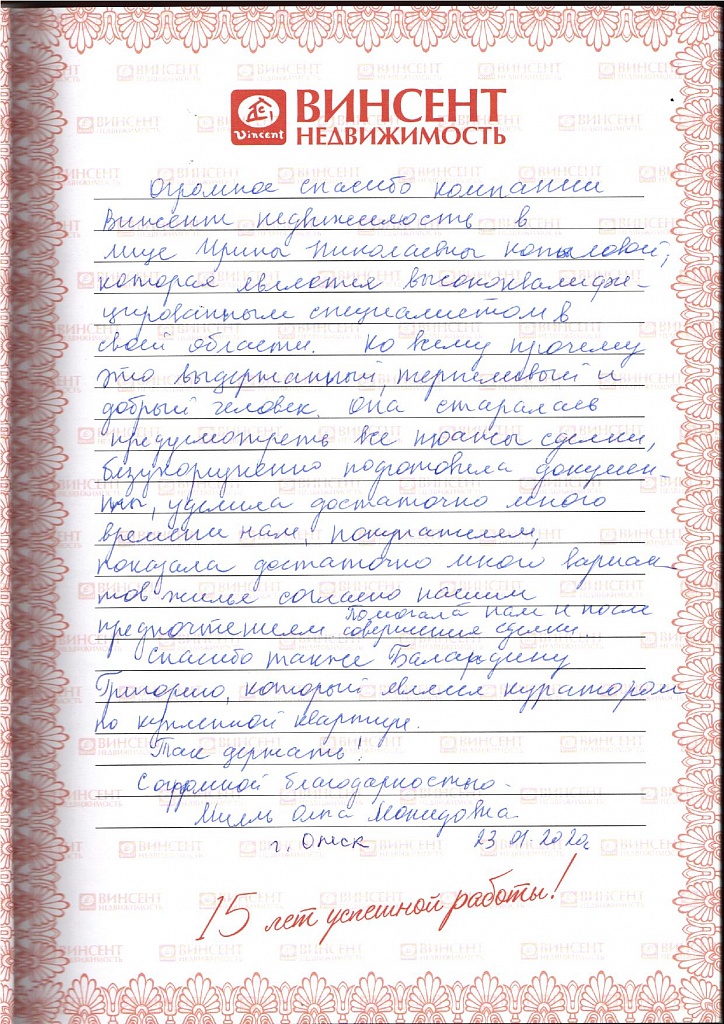 Vincent
ВИНСЕНТ
НЕДВИЖИМОСТЬ
Огромное спасибо компании
Винсент недвижимость в
лице Ирины Николаевны Копыловой,
которая является высококвалифи-
цированным специалистом в
своей области. Ко всему прочему
это выдержанный, терпеливый и
добрый человек. Она старалась
предусмотреть все нюансы сделки,
безукоризненно подготовила докумен-
ты, уделила достаточно много
времени нам, покупателям,
показала достаточно много вариан-
тов жилья согласно нашим
предпочтениям. Помогала нам и после
совершения сделки.
Спасибо также Баландину
Григорию, который являлся куратором
по купленной квартире.
Так держать!
С огромной благодарностью
Милль Ольга
г. Омск 23.01.2020г
15 лет успешной работы!